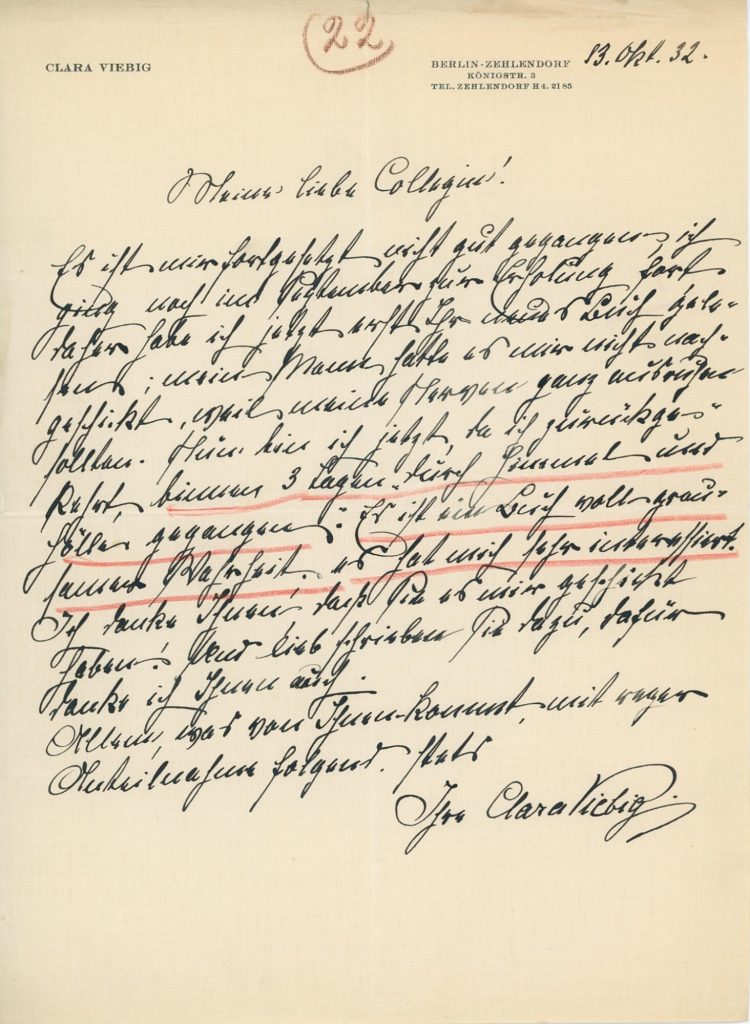 22
CLARA VIEBIG
BERLIN-ZEHLENDORF
KÖNIGSTR. 3
TEL. ZEHLENDORF H 4. 2185
13. Okt. 32.
Meine liebe Collegin!
Es ist mir fortgesetzt nicht gut gegangen, ich
ging noch im September zur Erholung fort
daher habe ich jetzt erst Ihr neues Buch gele-
sen; mein Mann hatte es mir nicht nach-
geschickt, weil meine Nerven ganz ausruhen
sollten. Nun bin ich jetzt, da ich zurückge-
kehrt, binnen 3 Tagen „durch Himmel und
Hölle gegangen". Es ist ein Buch voll grau-
samer Wahrheit, es hat mich sehr interessiert.
Ich danke Ihnen, daß Sie es mir geschickt
haben! Und lieb schrieben Sie dazu, dafür
danke ich Ihnen auch.
Allem, was von Ihnen kommt, mit reger
Anteilnahme folgend. stets
Ihre Clara Viebig.